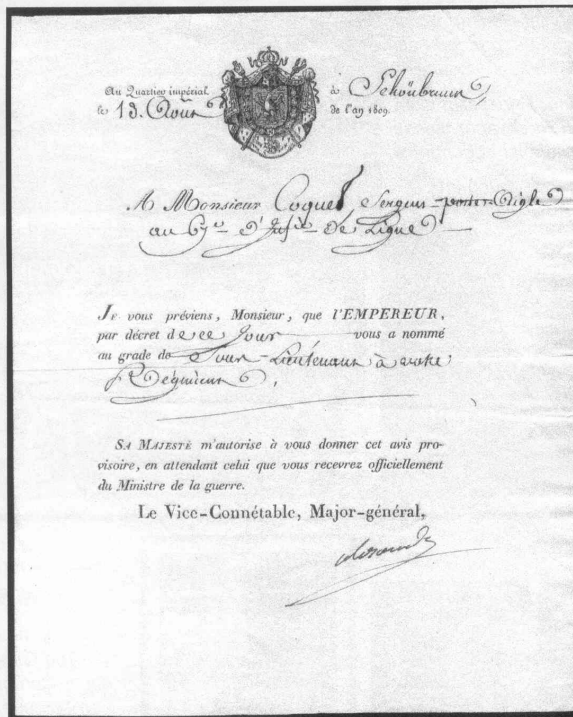 Au Quartier impérial à Schönbrunn,
le 13. Août de l'an 1809.
A Monsieur Coquel Sergent-porte-Aigle
au 67e d'Infie de Ligne
JE vous préviens, Monsieur, que l'EMPEREUR,
par décret de ce Jour vous a nommé
au grade de Sous-Lieutenant à votre
Régiment,
SA MAJESTÉ m'autorise à vous donner cet avis pro-
visoire, en attendant celui que vous recevrez officiellement
du Ministre de la guerre.
Le Vice-Connétable, Major-général,